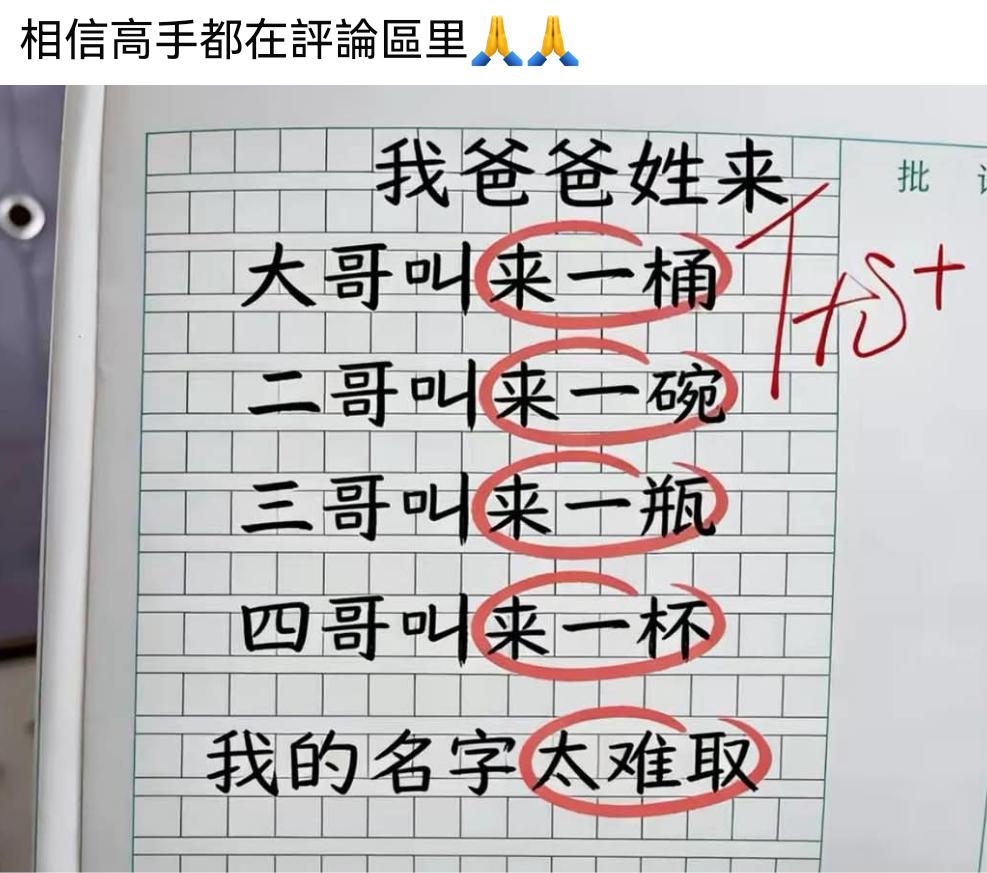 相信高手都在評論區里🙏🙏
我爸爸姓来
批
大哥叫来一桶
二哥叫来一碗
三哥叫来一瓶
四哥叫来一杯
我的名字太难取